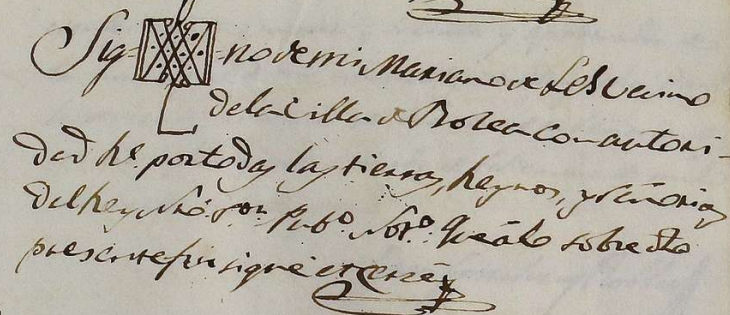 Sig-no de mi Mariano de Les Vecino
de la Villa de Bolea con autori-
dad Rl. por todas las tierras, Reynos, y Señorias
del Rey Nro. Sor. Pubo. Noto. que a lo sobre dho
presente fui signé et cerré